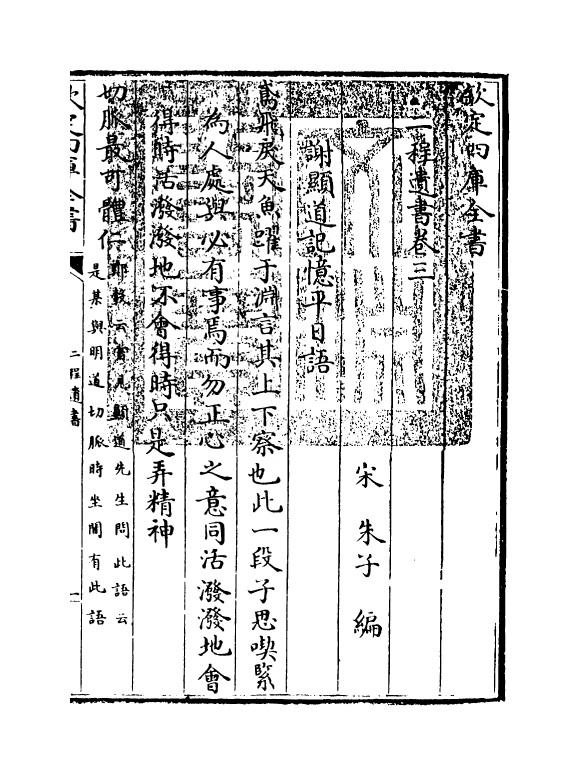 欽定四庫全書
二程遺書卷三
宋 朱子 編
謝顯道記憶平日語
鳶飛戾天魚躍于淵言其上下察也此一段子思喫緊
為人處與必有事焉而勿正心之意同活潑潑地會
得時活潑潑地不會得時只是弄精神
切脈最可體仁
鄭轂云嘗見顯道先生問此語云
是某與明道切脈時坐間有此語
欽定四庫全書
二程遺書
一